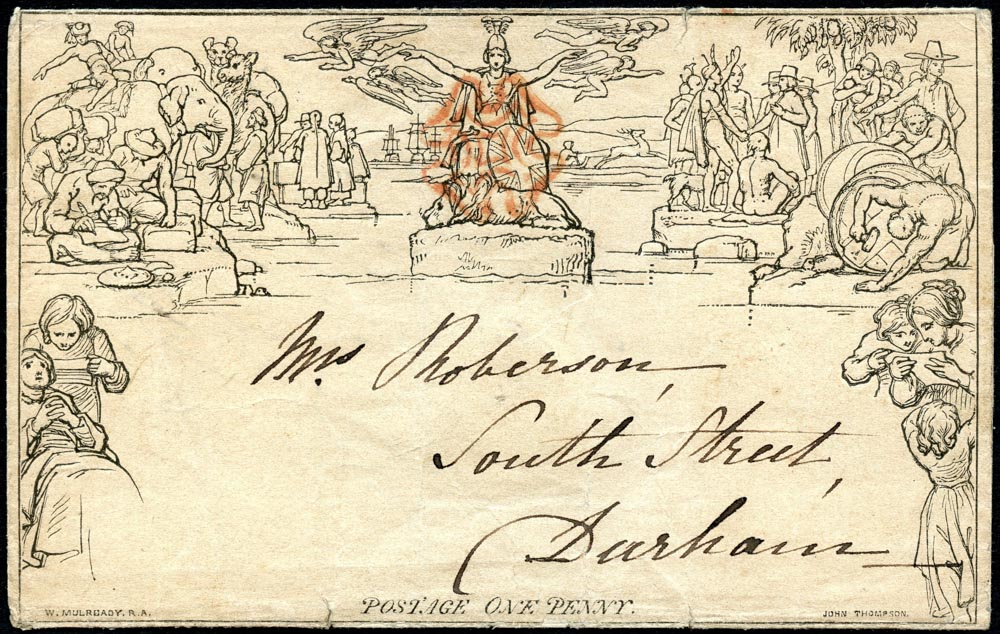 Mrs Roberson,
South Street,
Durham
W. MULREADY. R.A.
POSTAGE ONE PENNY.
JOHN THOMPSON.